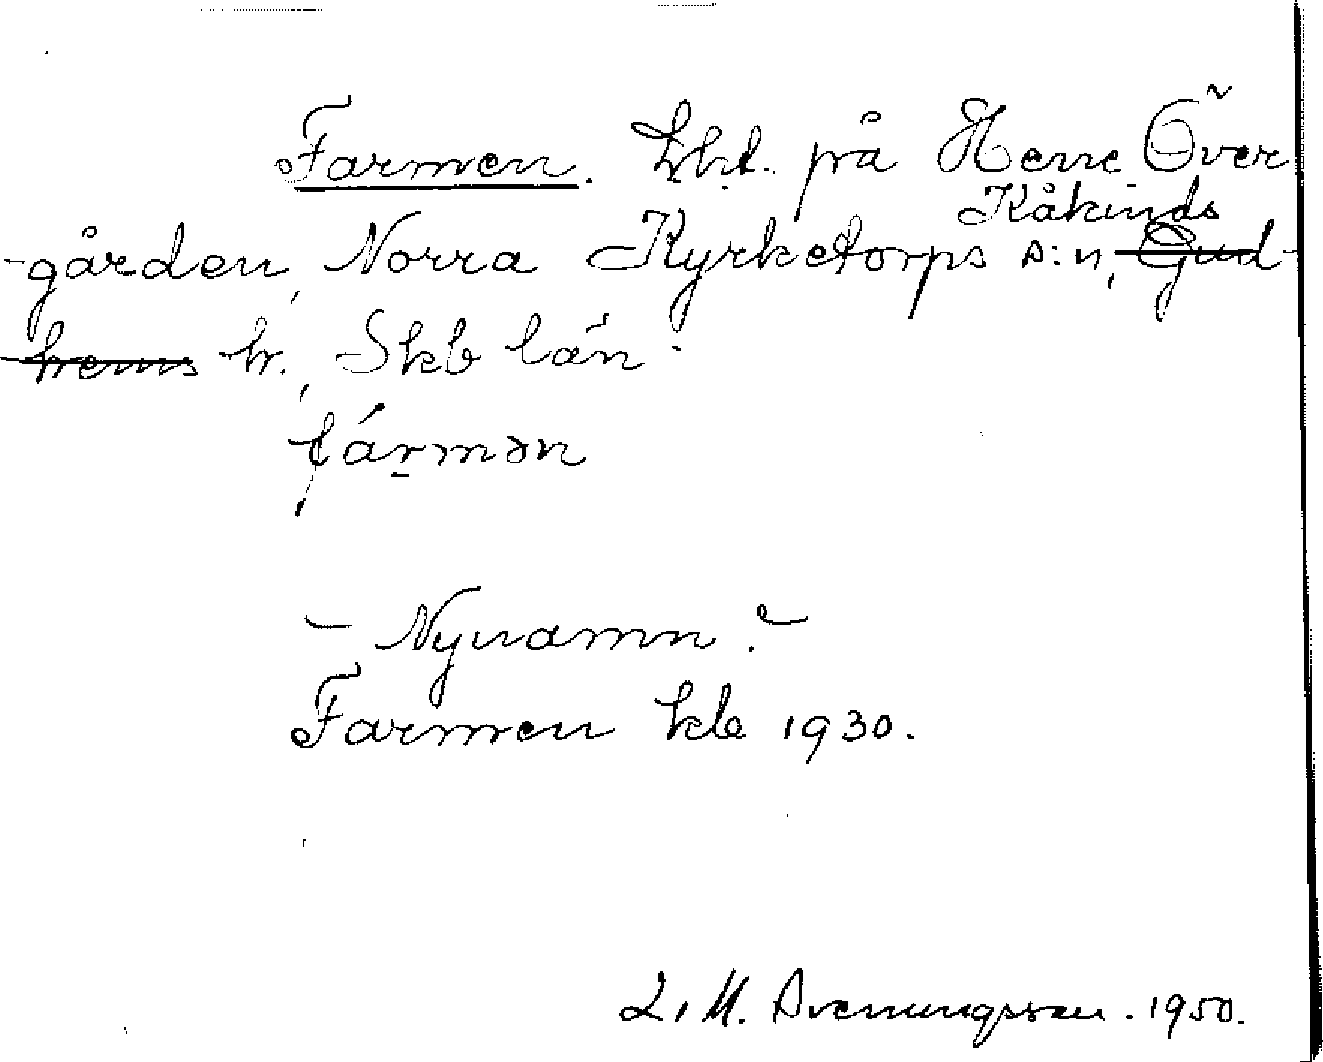 Farmen. Lht. på Herre Över
-gården, Norra Kyrketorps s:n, Kåkinds Gud-
hems hr., Skb län.
fármən
- Nynamn. -
Farmen kb 1930.
L. M. Svenungsson. 1950.